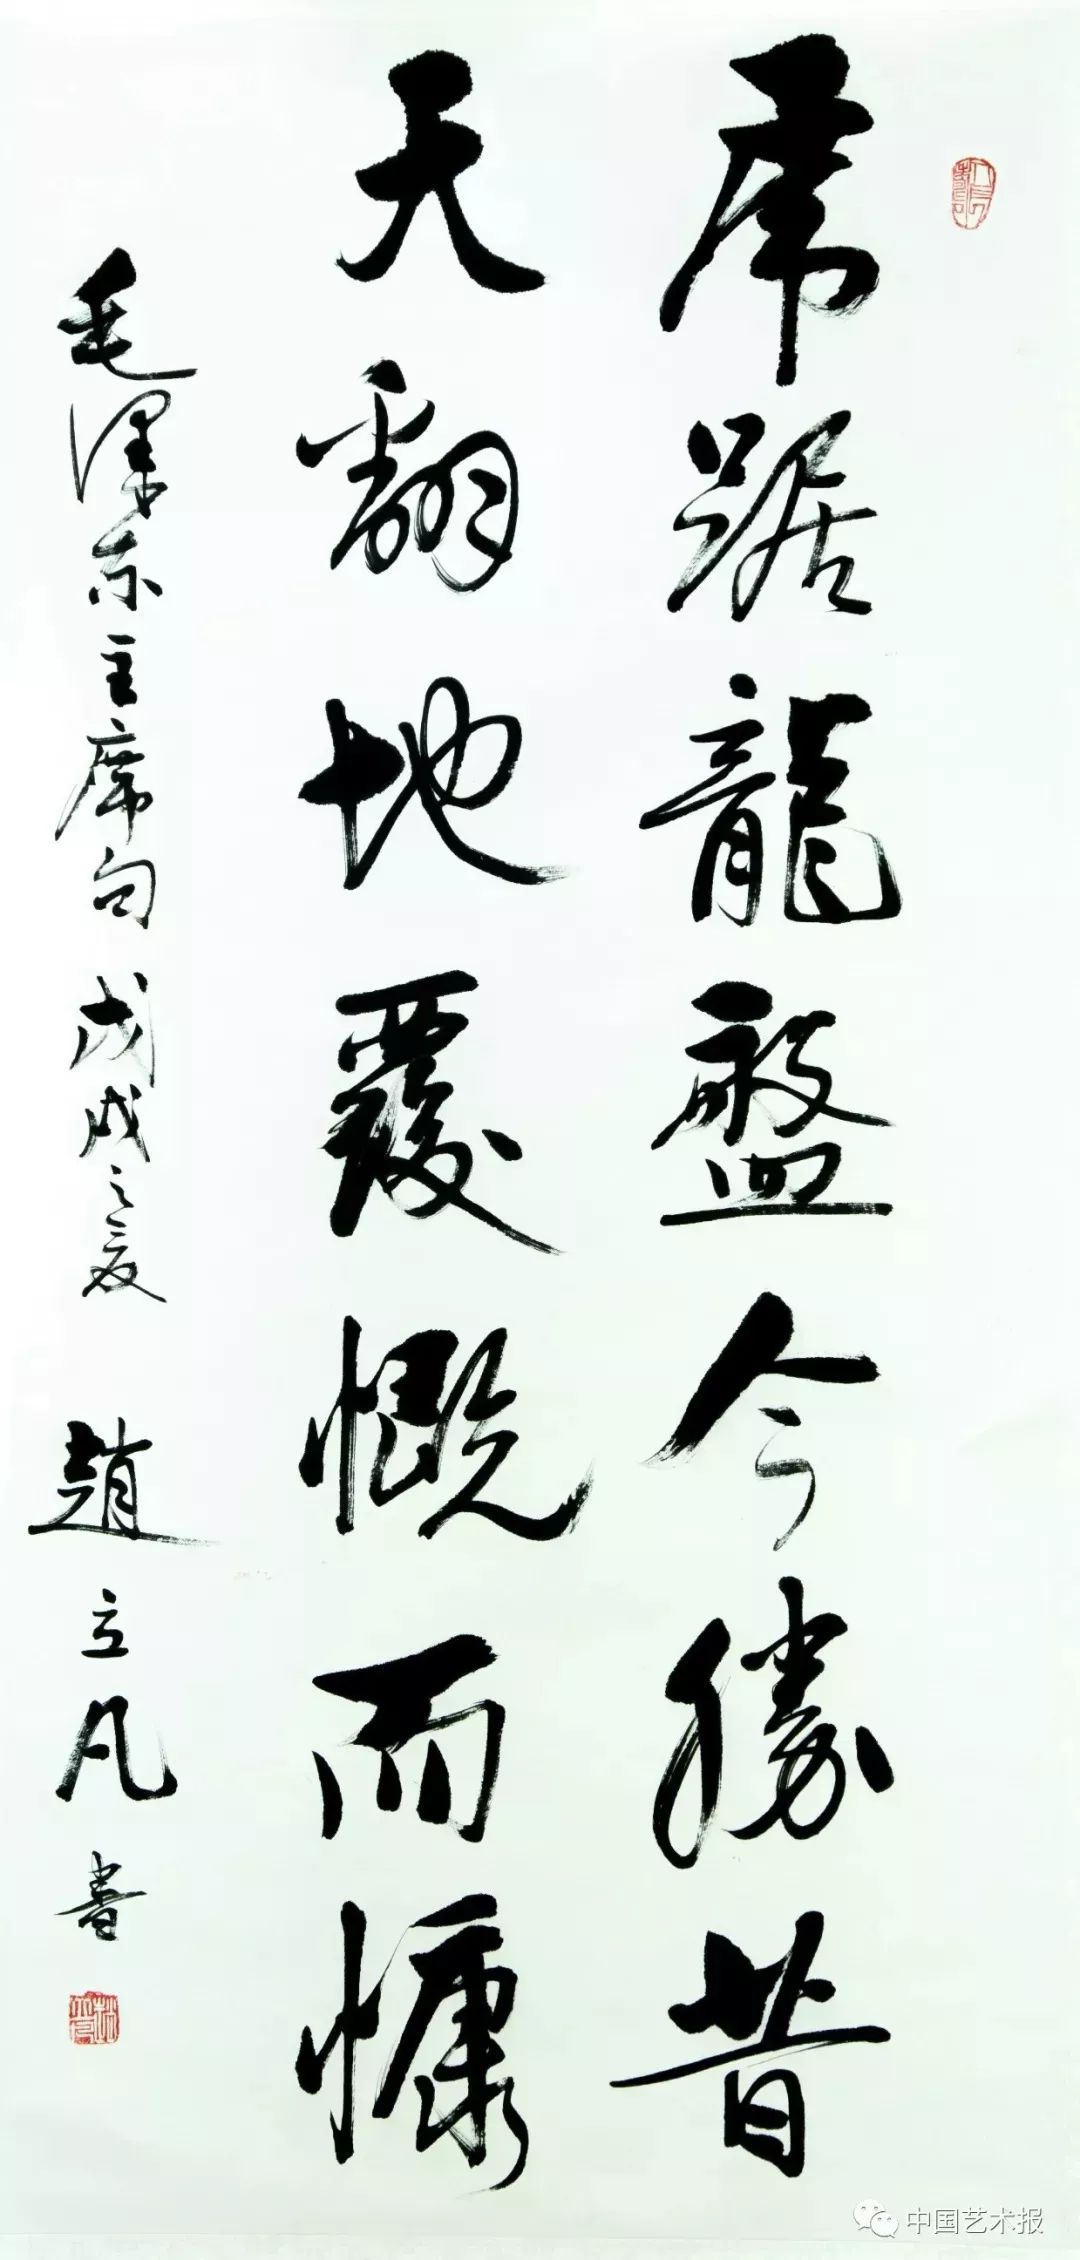 虎踞龍盤今勝昔
天翻地覆慨而慷
毛澤东主席句 戊戌之夏
趙立凡書
中国艺术报